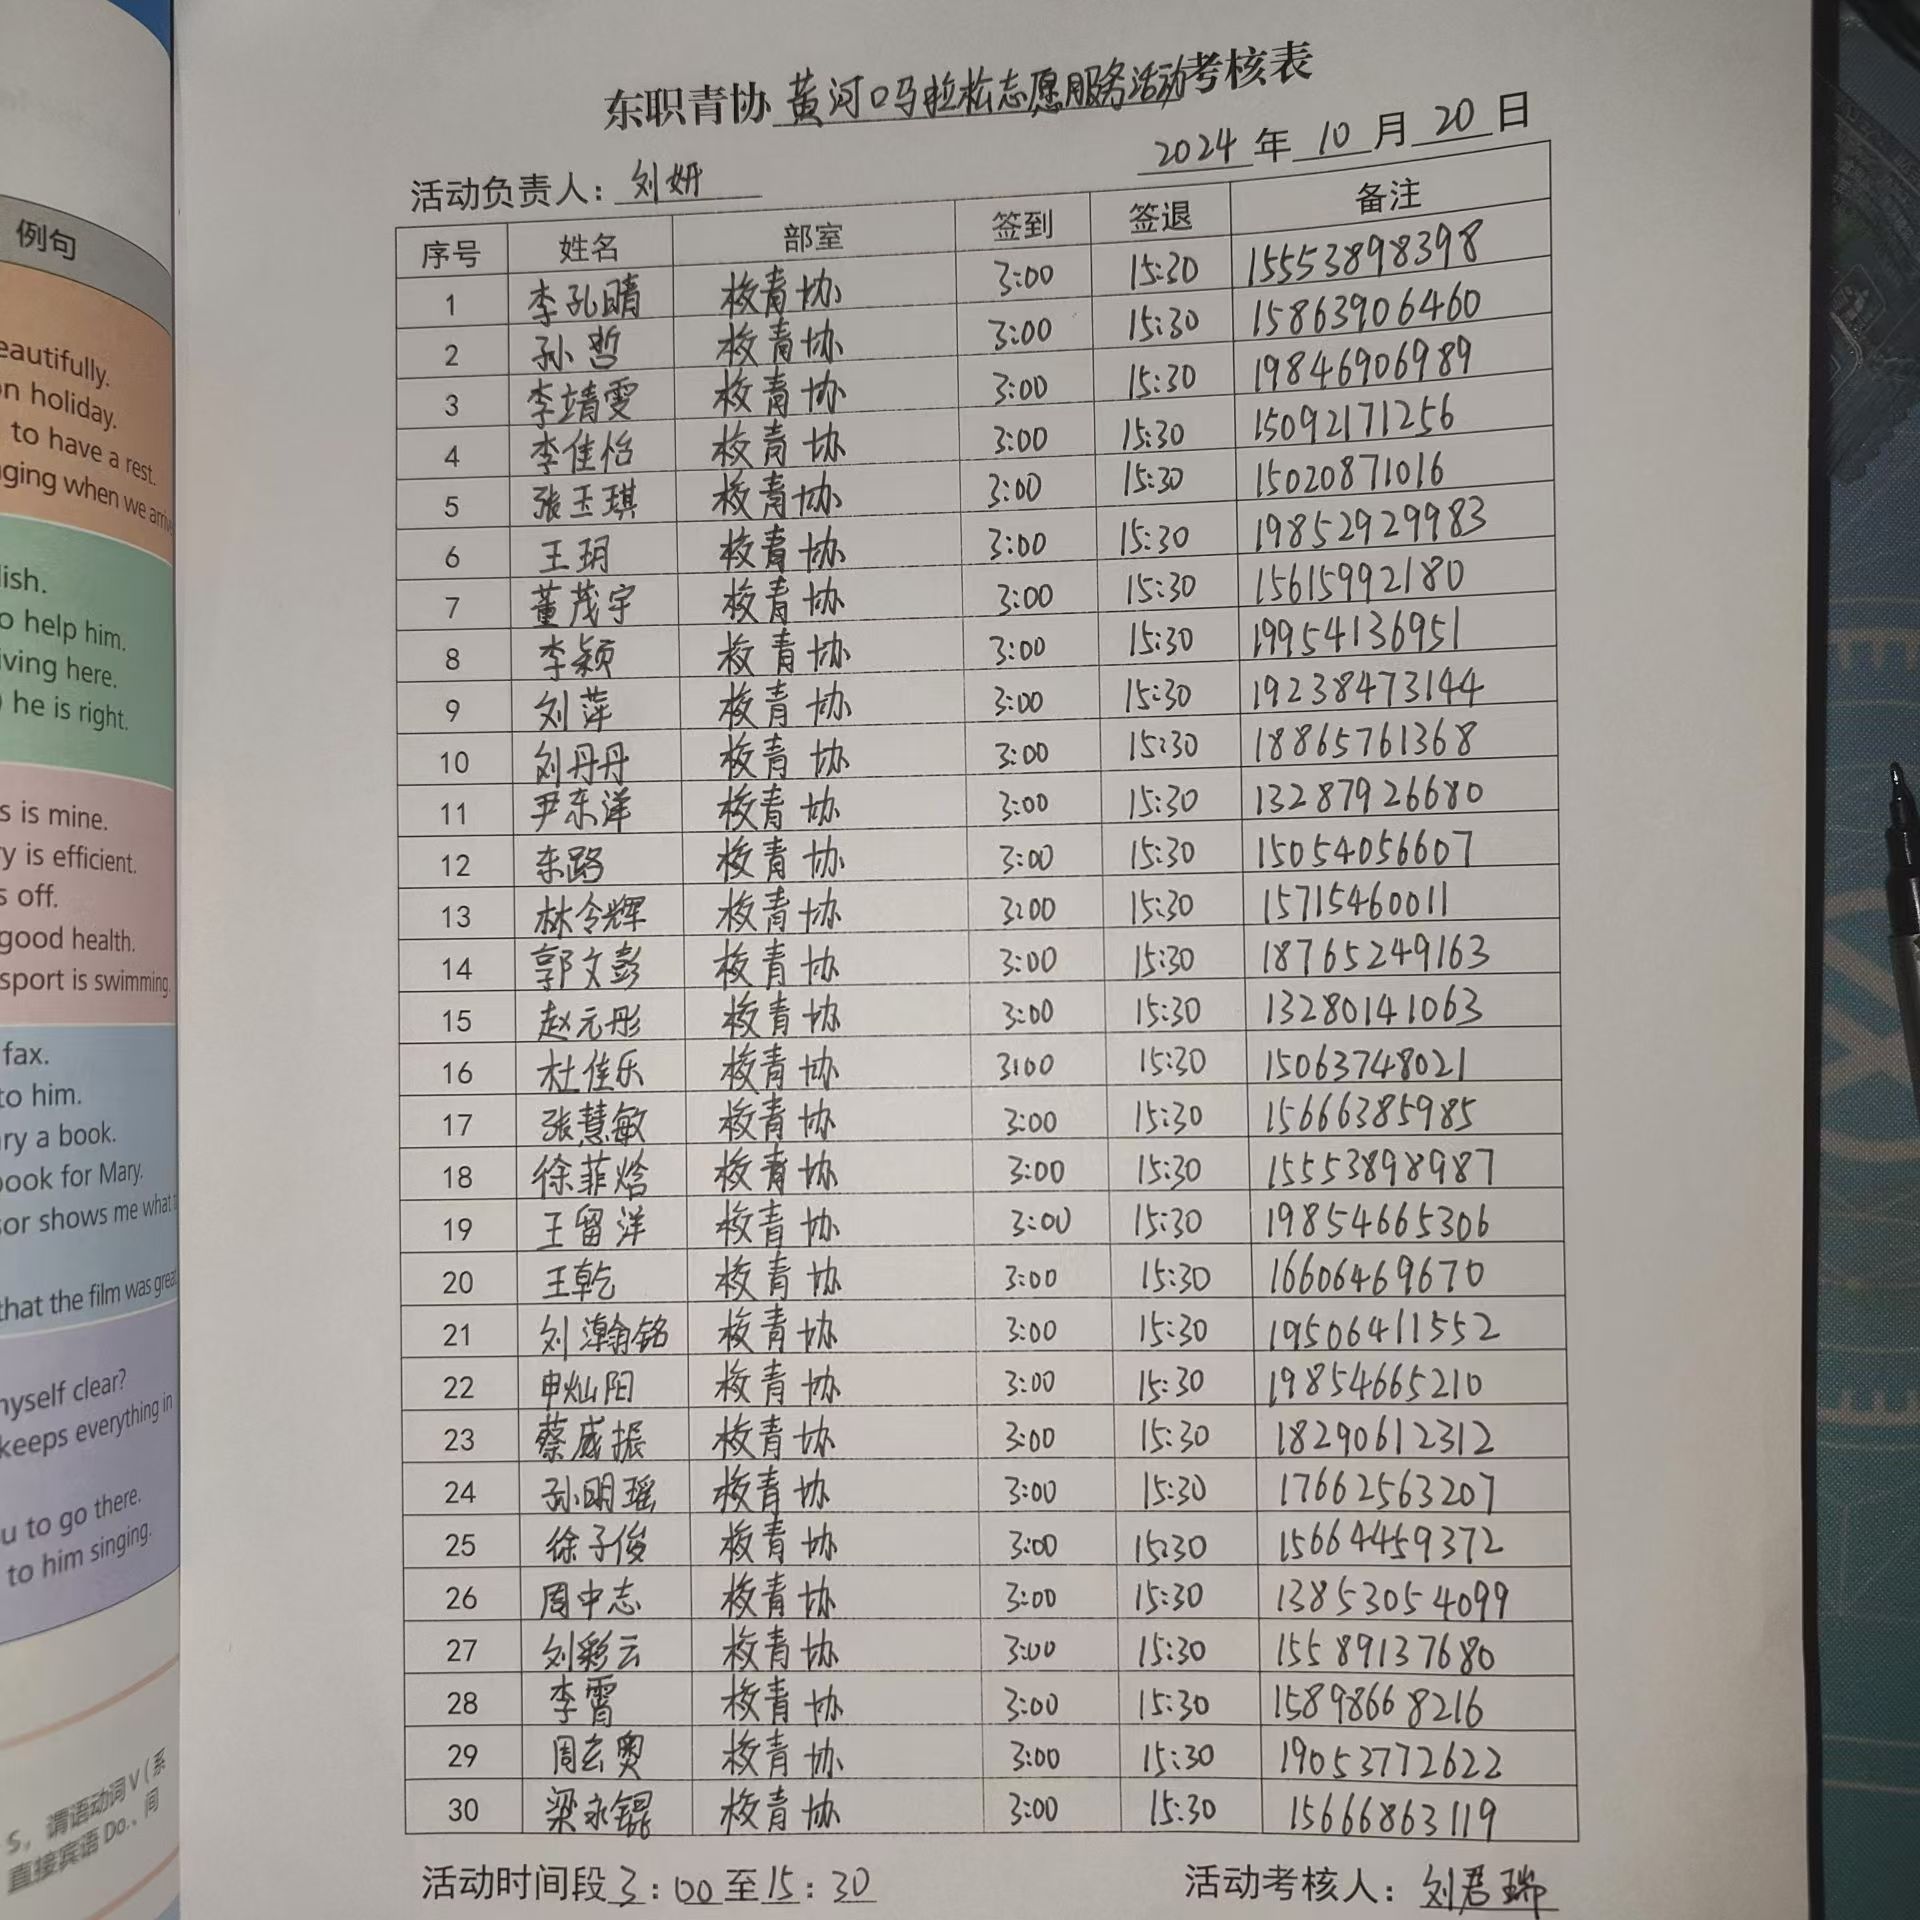 东职青协黄河口马拉松志愿服务活动考核表
2024年10月20日
活动负责人：刘妍
序号 姓名 部室 签到 签退 备注
1 李孔晴 校青协 3:00 15:30 15553898398
2 孙哲 校青协 3:00 15:30 15863906460
3 李靖雯 校青协 3:00 15:30 19846906989
4 李佳怡 校青协 3:00 15:30 15092171256
5 张玉琪 校青协 3:00 15:30 15020871016
6 王玥 校青协 3:00 15:30 19852929983
7 董茂宇 校青协 3:00 15:30 15615992180
8 李颖 校青协 3:00 15:30 19954136951
9 刘萍 校青协 3:00 15:30 19238473144
10 刘丹丹 校青协 3:00 15:30 18865761368
11 尹东洋 校青协 3:00 15:30 13287926680
12 东路 校青协 3:00 15:30 15054056607
13 林令辉 校青协 3:00 15:30 15715460011
14 郭文彭 校青协 3:00 15:30 18765249163
15 赵元彤 校青协 3:00 15:30 13280141063
16 杜佳乐 校青协 3:00 15:30 15063748021
17 张慧敏 校青协 3:00 15:30 15666385985
18 徐菲焓 校青协 3:00 15:30 15553898987
19 王留洋 校青协 3:00 15:30 19854665306
20 王乾 校青协 3:00 15:30 16606469670
21 刘瀚铭 校青协 3:00 15:30 19506411552
22 申灿阳 校青协 3:00 15:30 19854665210
23 蔡威振 校青协 3:00 15:30 18290612312
24 孙明瑶 校青协 3:00 15:30 17662563207
25 徐子俊 校青协 3:00 15:30 15664459372
26 周中志 校青协 3:00 15:30 13853054099
27 刘彩云 校青协 3:00 15:30 15589137680
28 李霄 校青协 3:00 15:30 15898668216
29 周玄奥 校青协 3:00 15:30 19053772622
30 梁永锟 校青协 3:00 15:30 15666863119
活动时间段3：00至15：30
活动考核人：刘君瑞
例句
eautifully.
on holiday.
to have a rest.
ging when we arriv
lish.
o help him.
iving here.
he is right.
s is mine.
ry is efficient.
s off.
good health.
sport is swimming.
fax.
to him.
ary a book.
book for Mary.
sor shows me what
that the film was great
myself clear?
keeps everything in
u to go there.
to him singing.
S，谓语动词V（系
直接宾语Do.、间